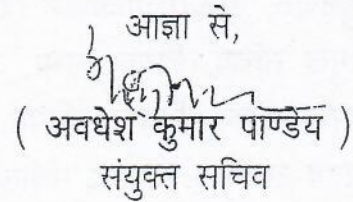 आज्ञा से,
( अवधेश कुमार पाण्डेय )
संयुक्त सचिव